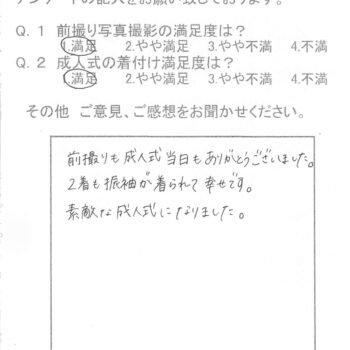 アンケートの記入をお願い致しております。
Q.1 前撮り写真撮影の満足度は？
1.満足 2.やや満足 3.やや不満 4.不満
Q.2 成人式の着付け満足度は？
1.満足 2.やや満足 3.やや不満 4.不満
その他 ご意見、ご感想をお聞かせください。
前撮りも成人式当日もありがとうございました。
2着も振袖が着られて幸せです。
素敵な成人式になりました。